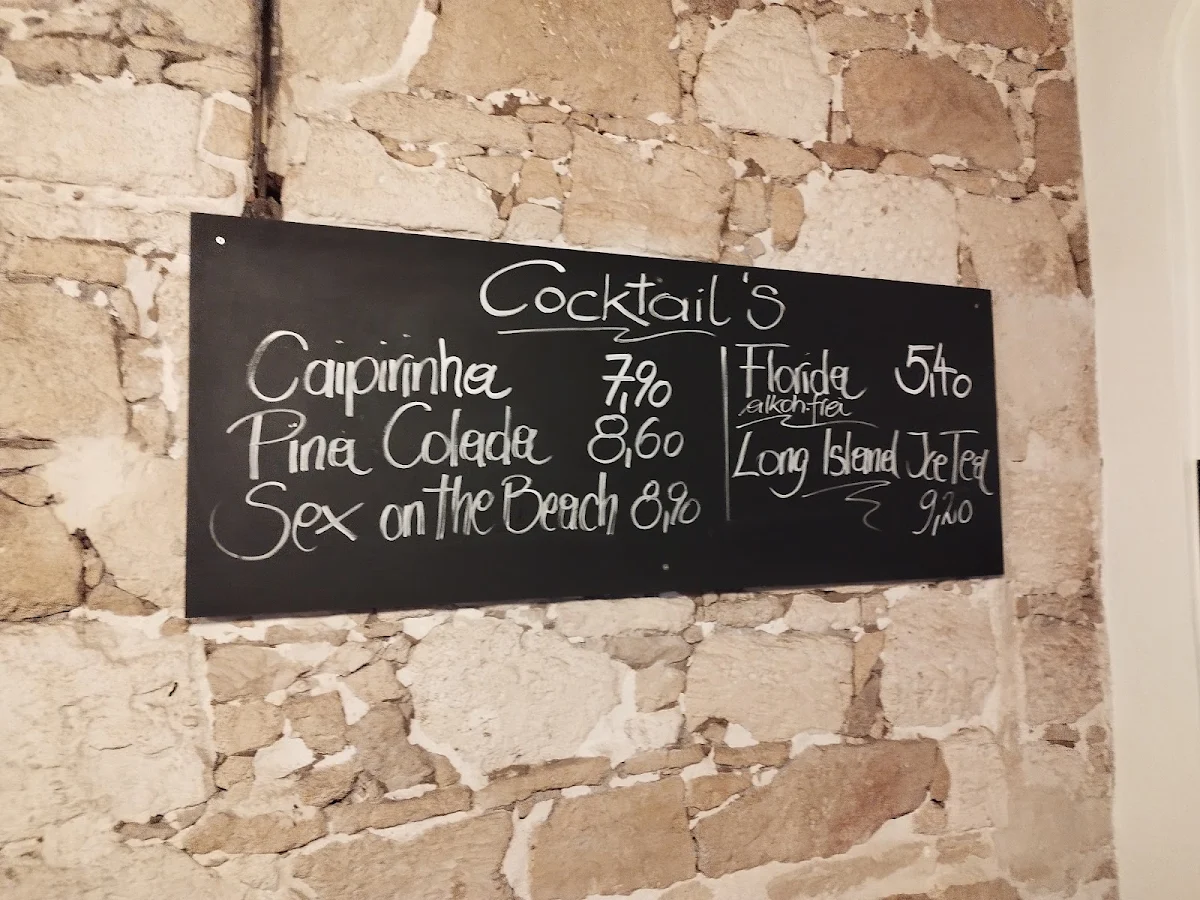 Cocktail's
Caipirinha 7,90
Pina Colada 8,60
Sex on the Beach 8,90
Florida 5,40
alkoh-frei
Long Island Ice Tea
9,20